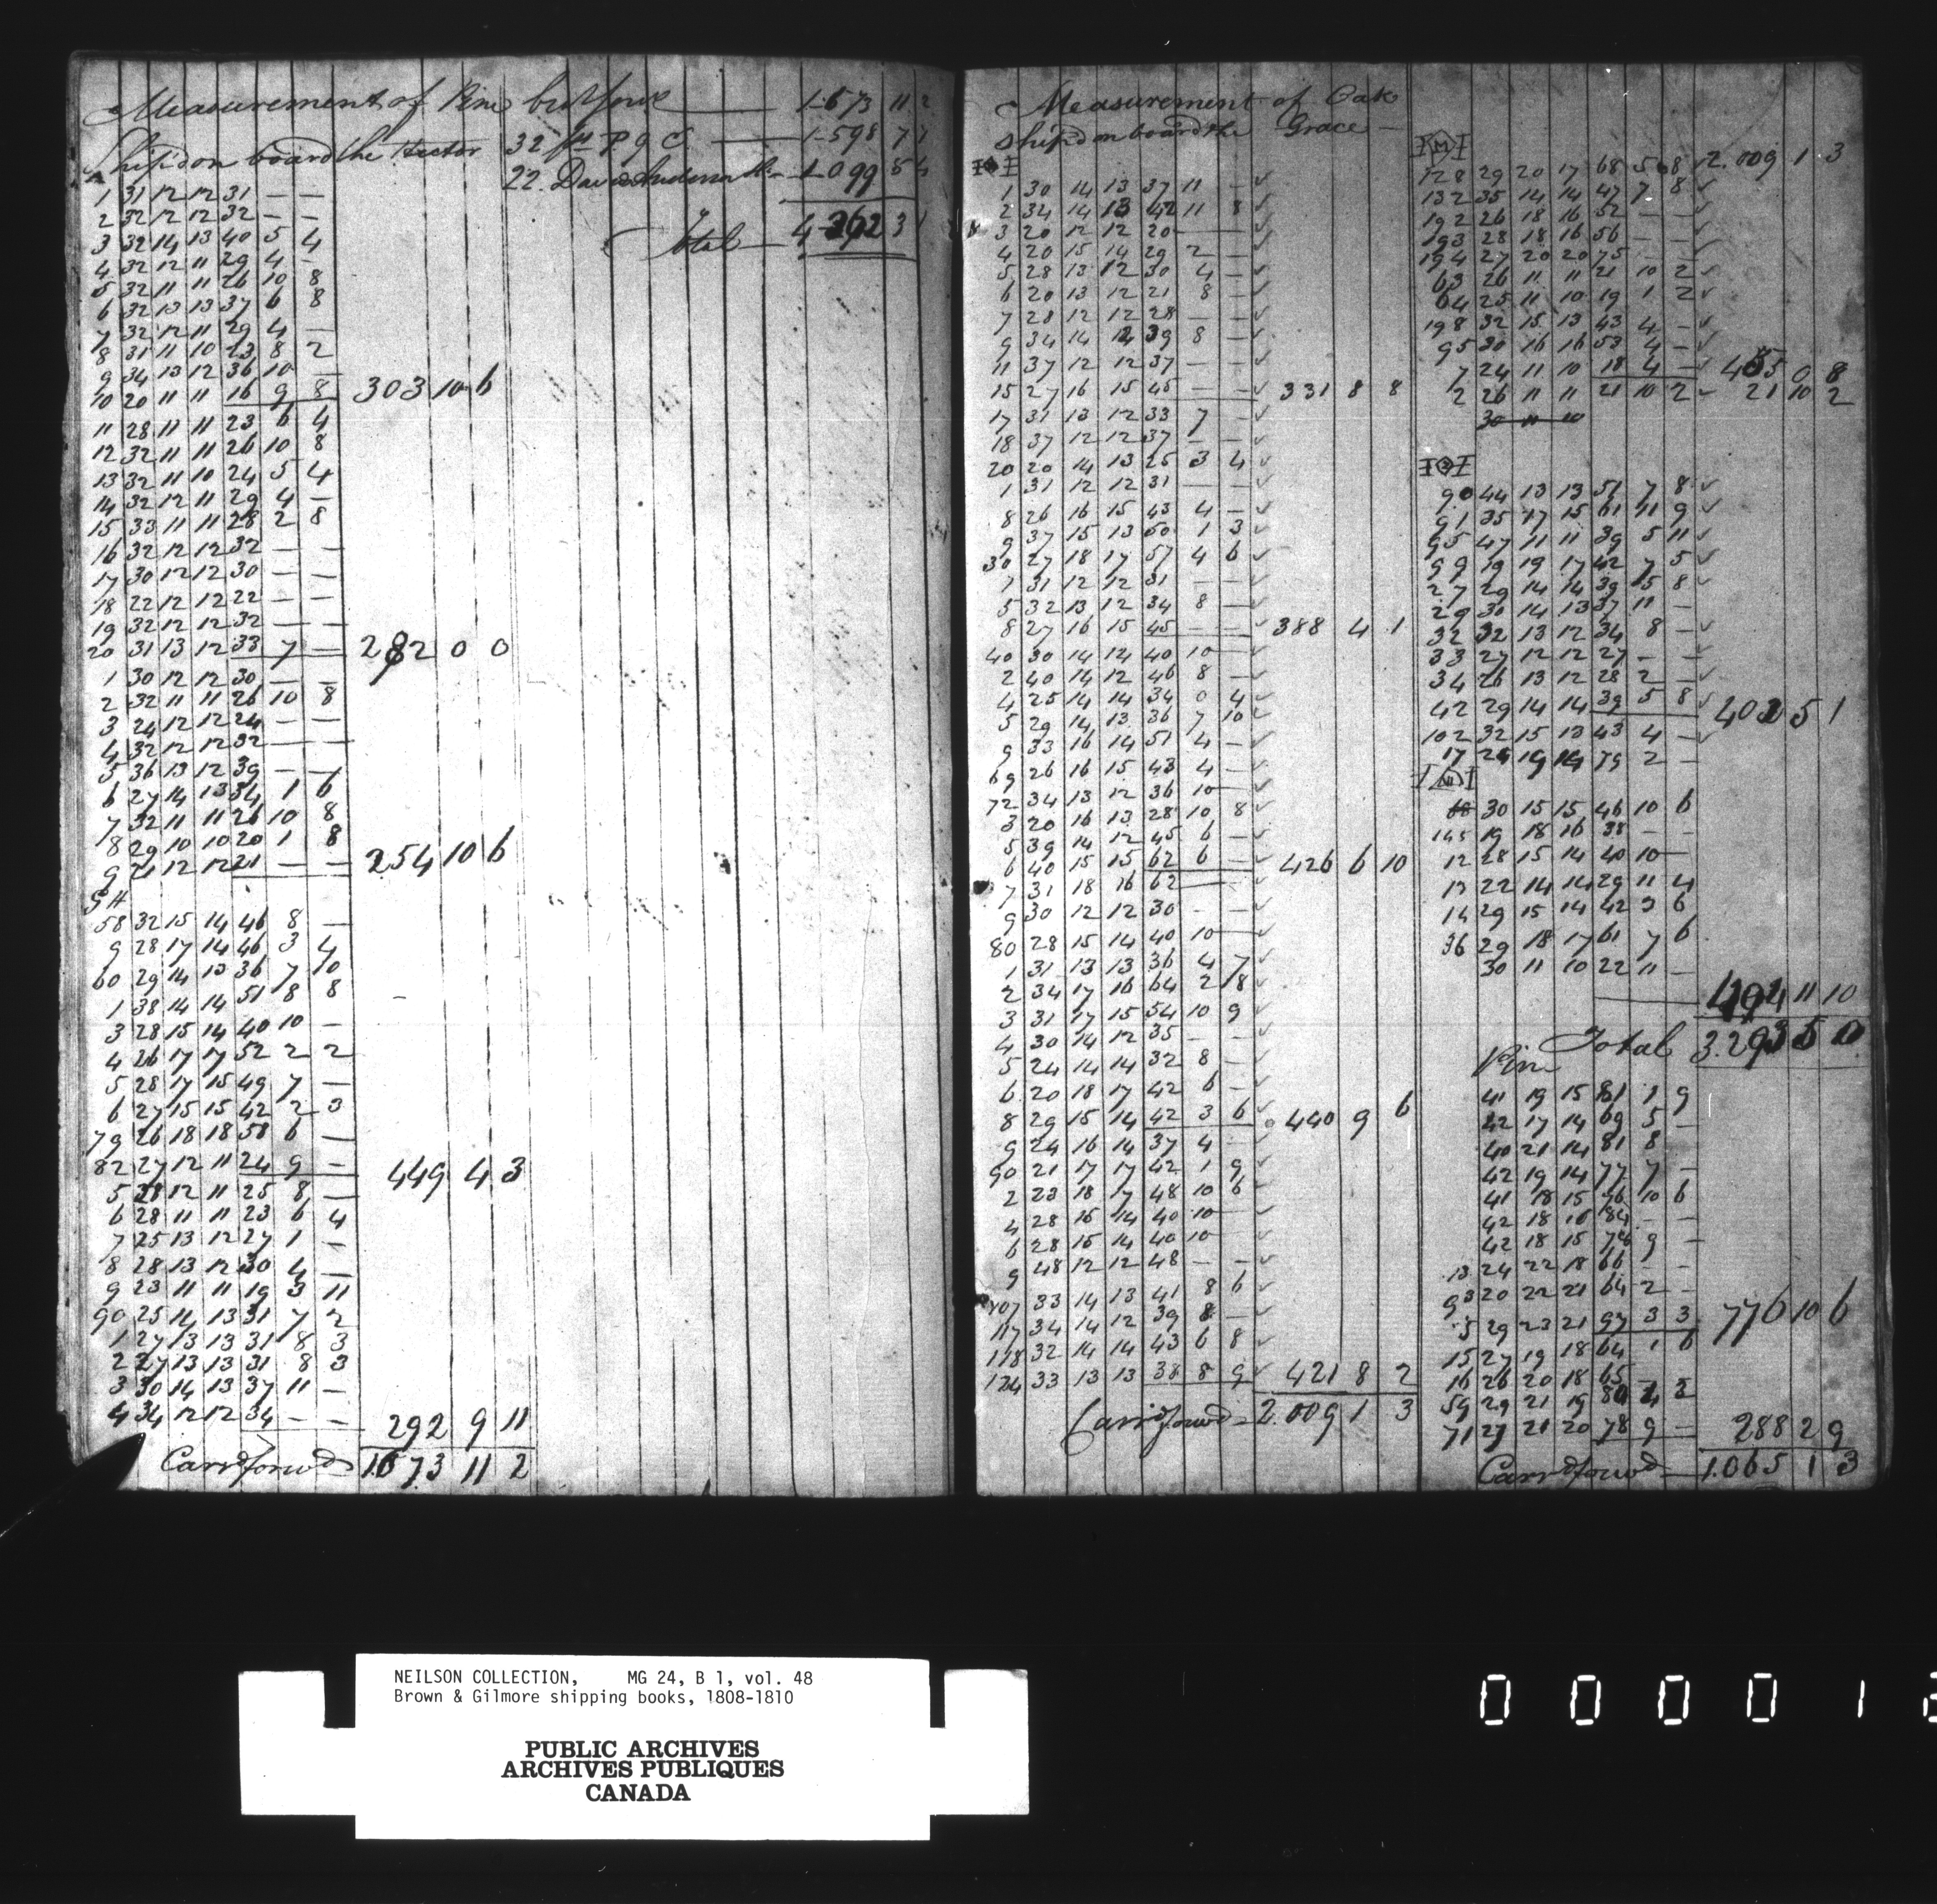 Measurement of Pine
Ship'd on board the Hector
1 31 12 12 31 — —
2 32 12 12 32 — —
3 32 14 13 40 5 4
4 32 12 11 29 4 —
5 32 11 11 26 10 8
6 32 13 13 37 6 8
7 32 12 11 29 4 —
8 31 11 10 23 8 2
9 34 13 12 36 10 —
10 20 11 11 16 9 8 303 10 6
11 28 11 11 23 6 4
12 32 11 11 26 10 8
13 32 11 10 24 5 4
14 32 12 11 29 4 —
15 33 11 11 28 2 8
16 32 12 12 32 — —
17 30 12 12 30 — —
18 22 12 12 22 — —
19 32 12 12 32 — —
20 31 13 12 33 7 — 282 0 0
1 30 12 12 30 — —
2 32 11 11 26 10 8
3 24 12 12 24 — —
4 32 12 12 32 — —
5 36 13 12 39 — —
6 27 14 13 34 1 6
7 32 11 11 26 10 8
8 29 10 10 20 1 8
9 21 12 12 21 — — 254 10 6
G H
58 32 15 14 46 8 —
9 28 17 14 46 3 4
60 29 14 13 36 7 10
1 38 14 14 51 8 8
3 28 15 14 40 10 —
4 26 17 17 52 2 2
5 28 17 15 49 7 —
6 27 15 15 42 2 3
79 26 18 18 58 6 —
82 27 12 11 24 9 — 449 4 3
5 28 12 11 25 8 —
6 28 11 11 23 6 4
7 25 13 12 27 1 —
8 28 13 12 30 4 —
9 23 11 11 19 3 11
90 25 14 13 31 7 2
1 27 13 13 31 8 3
2 27 13 13 31 8 3
3 30 14 13 37 11 —
4 34 12 12 34 — — 292 9 11
Carrd forwd 1573 11 2
1.573 11 2
32 P g C — 1.598 7 7
22 David Anderson — 1.099 5 4
Total — 4.262 3 1
Measurement of Oak
Ship'd on board the Grace —
1 30 14 13 37 11 —
2 34 14 13 42 11 8
3 20 12 12 20 —
4 20 15 14 29 2 —
5 28 13 12 30 4 —
6 20 13 12 21 8 —
7 28 12 12 28 — —
9 34 14 12 39 8 —
11 37 12 12 37 — —
15 27 16 15 45 — — 331 8 8
17 31 13 12 33 7 —
18 37 12 12 37 — —
20 20 14 13 25 3 4
1 31 12 12 31 — —
8 26 16 15 43 4 —
9 37 15 13 50 1 3
30 27 18 17 57 4 6
1 31 12 12 31 — —
5 32 13 12 34 8 —
8 27 16 15 45 — — 388 4 1
40 30 14 14 40 10 —
2 40 14 12 46 8 —
4 25 14 14 34 0 4
5 29 14 13 36 7 10
9 33 16 14 51 4 —
69 26 16 15 43 4 —
72 34 13 12 36 10 —
3 20 16 13 28 10 8
5 39 14 12 45 6 —
6 40 15 15 62 6 — 426 6 10
7 31 18 16 62 —
9 30 12 12 30 — —
80 28 15 14 40 10 —
1 31 13 13 36 4 7
2 34 17 16 64 2 8
3 31 17 15 54 10 9
4 30 14 12 35 — —
5 24 14 14 32 8 —
6 20 18 17 42 6 —
8 29 15 14 42 3 6 440 9 6
9 24 16 14 37 4 —
90 21 17 17 42 1 9
2 23 18 17 48 10 6
4 28 15 14 40 10 —
6 28 15 14 40 10 —
9 48 12 12 48 — —
107 33 14 13 41 8 6
117 34 14 12 39 8 —
118 32 14 14 43 6 8
124 33 13 13 38 8 9 421 8 2
Carrid forwd — 2.009 1 3
M
2.009 1 3
128 29 20 17 68 5 8
132 35 14 14 47 7 8
192 26 18 16 52 — —
193 28 18 16 56 — —
194 27 20 20 75 — —
63 26 11 11 21 10 2
64 25 11 10 19 1 2
198 32 15 13 43 4 —
95 30 16 16 53 4 —
7 24 11 10 18 4 — 455 0 8
2 26 11 11 21 10 2 21 10 2
30 11 10
90 44 13 13 51 7 8
91 35 17 15 61 11 9
95 47 11 11 39 5 11
99 19 19 17 42 7 5
27 29 14 14 39 5 8
29 30 14 13 37 11 —
32 32 13 12 34 8 —
33 27 12 12 27 — —
34 26 13 12 28 2 —
42 29 14 14 39 5 8 402 5 1
102 32 15 13 43 4 —
17 29 19 14 79 2 —
68 30 15 15 46 10 6
145 19 18 16 38 — —
12 28 15 14 40 10 —
13 22 14 14 29 11 4
14 29 15 14 42 3 6
36 29 18 17 61 7 6
30 11 10 22 11 —
404 11 10
Total 3.293 5 0
Pine
41 19 15 81 1 9
42 17 14 69 5 —
40 21 14 81 8 —
42 19 14 77 7 —
41 18 15 76 10 6
42 18 16 84 — —
42 18 15 78 9 —
13 24 22 18 66 — —
93 20 22 21 64 2 —
5 29 23 21 97 3 3 776 10 6
15 27 19 18 64 1 6
16 26 20 18 65 —
59 29 21 19 80 4 3
71 27 21 20 78 9 — 288 2 9
Carrid forwd — 1.065 1 3
NEILSON COLLECTION, MG 24, B 1, vol. 48
Brown & Gilmore shipping books, 1808-1810
PUBLIC ARCHIVES
ARCHIVES PUBLIQUES
CANADA
0 0 0 0 1